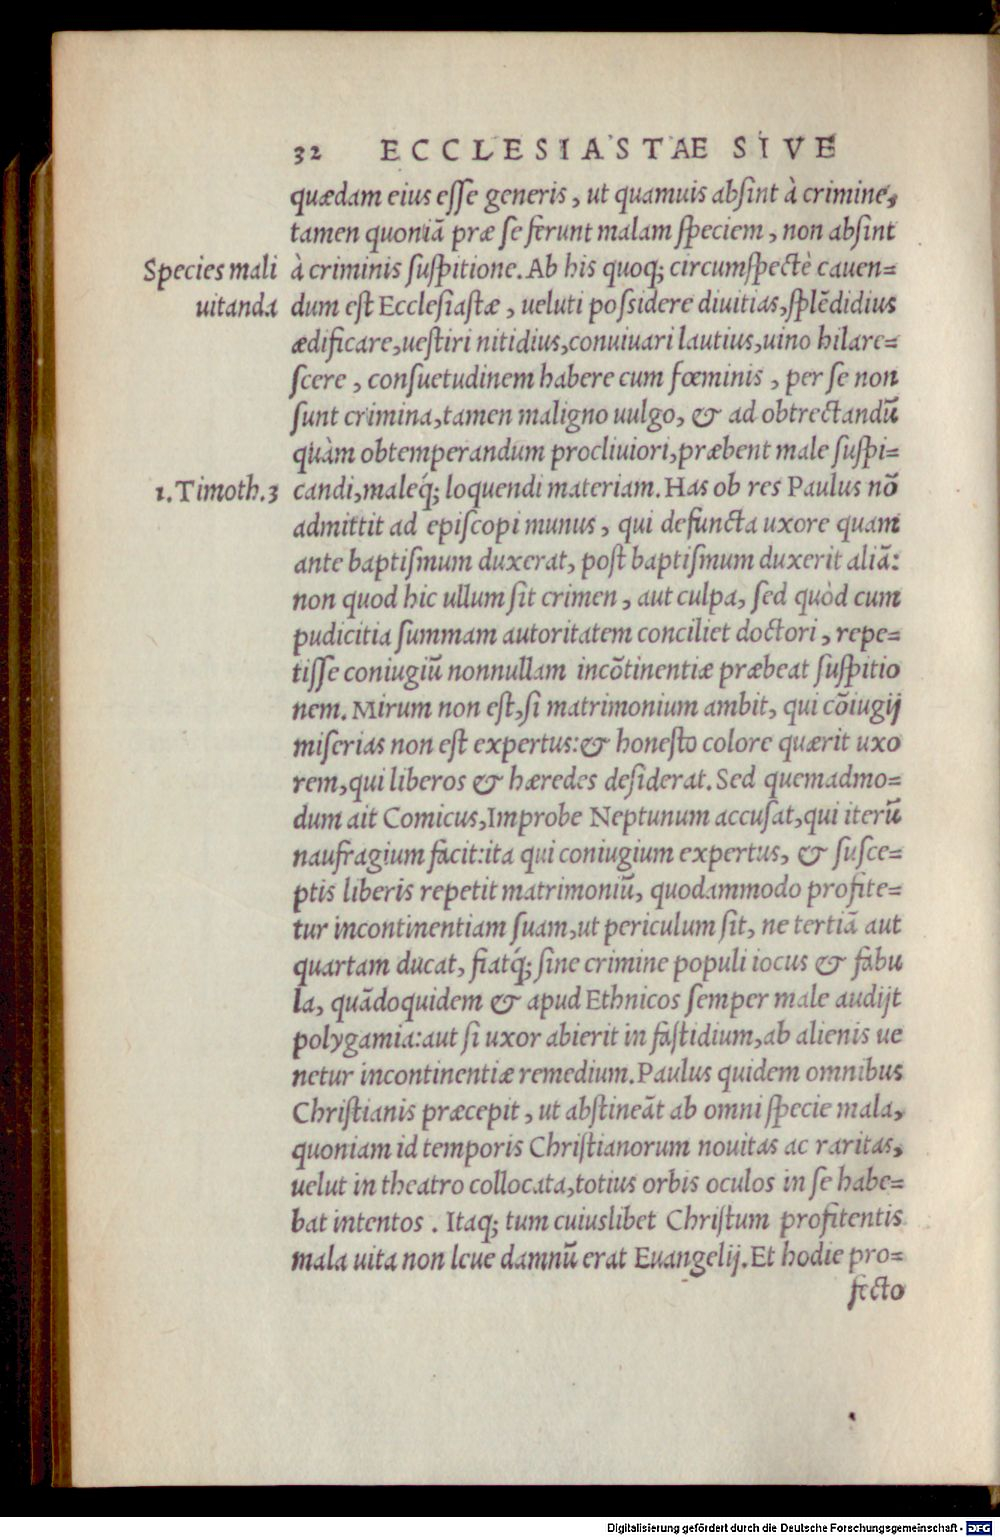 32 ECCLESIASTAE SIVE
quædam eius esse generis, ut quamuis absint à crimine,
tamen quoniā præ se ferunt malam speciem, non absint
Species mali à criminis suspitione. Ab his quoq; circumspectè cauen=
uitanda dum est Ecclesiastæ, ueluti possidere diuitias, splēdidius
ædificare, uestiri nitidius, conuiuari lautius, uino hilare=
scere, consuetudinem habere cum fœminis, per se non
sunt crimina, tamen maligno uulgo, & ad obtrectandū
quàm obtemperandum procliuiori, præbent male suspi=
1. Timoth. 3 candi, maleq́; loquendi materiam. Has ob res Paulus nō
admittit ad episcopi munus, qui defuncta uxore quam
ante baptismum duxerat, post baptismum duxerit aliā:
non quod hic ullum sit crimen, aut culpa, sed quòd cum
pudicitia summam autoritatem conciliet doctori, repe=
tisse coniugiū nonnullam incōtinentiæ præbeat suspitio
nem. Mirum non est, si matrimonium ambit, qui cōiugij
miserias non est expertus: & honesto colore quærit uxo
rem, qui liberos & hæredes desiderat. Sed quemadmo=
dum ait Comicus, Improbe Neptunum accusat, qui iterū
naufragium facit: ita qui coniugium expertus, & susce=
ptis liberis repetit matrimoniū, quodammodo profite=
tur incontinentiam suam, ut periculum sit, ne tertiā aut
quartam ducat, fiatq́; sine crimine populi iocus & fabu
la, quādoquidem & apud Ethnicos semper male audijt
polygamia: aut si uxor abierit in fastidium, ab alienis ue
netur incontinentiæ remedium. Paulus quidem omnibus
Christianis præcepit, ut abstineāt ab omni specie mala,
quoniam id temporis Christianorum nouitas ac raritas,
uelut in theatro collocata, totius orbis oculos in se habe=
bat intentos. Itaq; tum cuiuslibet Christum profitentis
mala uita non leue damnū erat Euangelij. Et hodie pro=
fecto
Digitalisierung gefördert durch die Deutsche Forschungsgemeinschaft - DFG